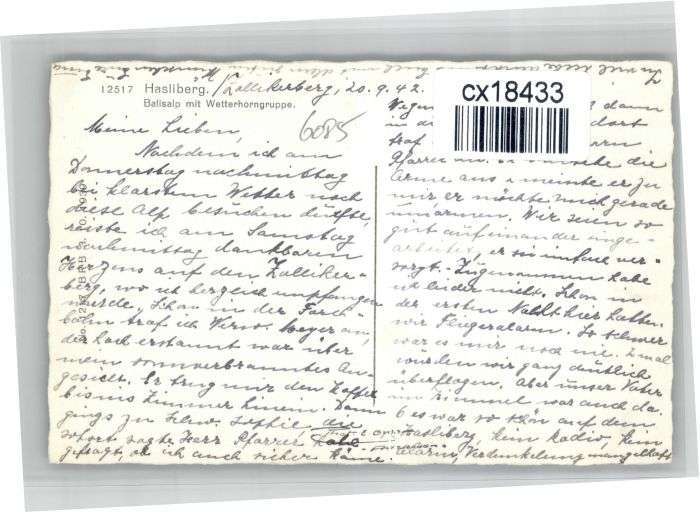 12517 Hasliberg. / Zollikerberg, 20.9.42.
Balisalp mit Wetterhorngruppe.
6085
cx18433
Meine Lieben,
Nachdem ich am
Donnerstag nachmittag
bei klarstem Wetter noch
diese Alp besuchen durfte,
reiste ich am Samstag
nachmittag dankbaren
Herzens auf den Zolliker-
berg, wo ich herzlich empfangen
wurde. Schon in der Forch-
bahn traf ich Meyer an,
der hoch erstaunt war über
mein sonnverbranntes An-
gesicht. Er trug mir den Koffer
bis ins Zimmer hinein. Dann
gings zu Schw. Sophie, die
sofort sagte, Herr Pfarrer habe
gefragt, ob ich auch sicher käme.
dann
in dort
traf
Pfarrer die
Arme aus meinte er zu
mir, er möchte mich gerade
umarmen. Wir seien so
gut aufeinander einge-
arbeitet, er sei einfach ver-
sorgt. Zugenommen habe
ich leider nicht. Schon in
der ersten Nacht hier hatten
wir Fliegeralarm. So schwer
war es mir noch nie. 2 mal
wurden wir ganz deutlich
überflogen. Aber unser Vater
im Himmel war auch da.
Es war so schön auf dem
Hasliberg, kein Radio, kein
Alarm, Verdunkelung mangelhaft